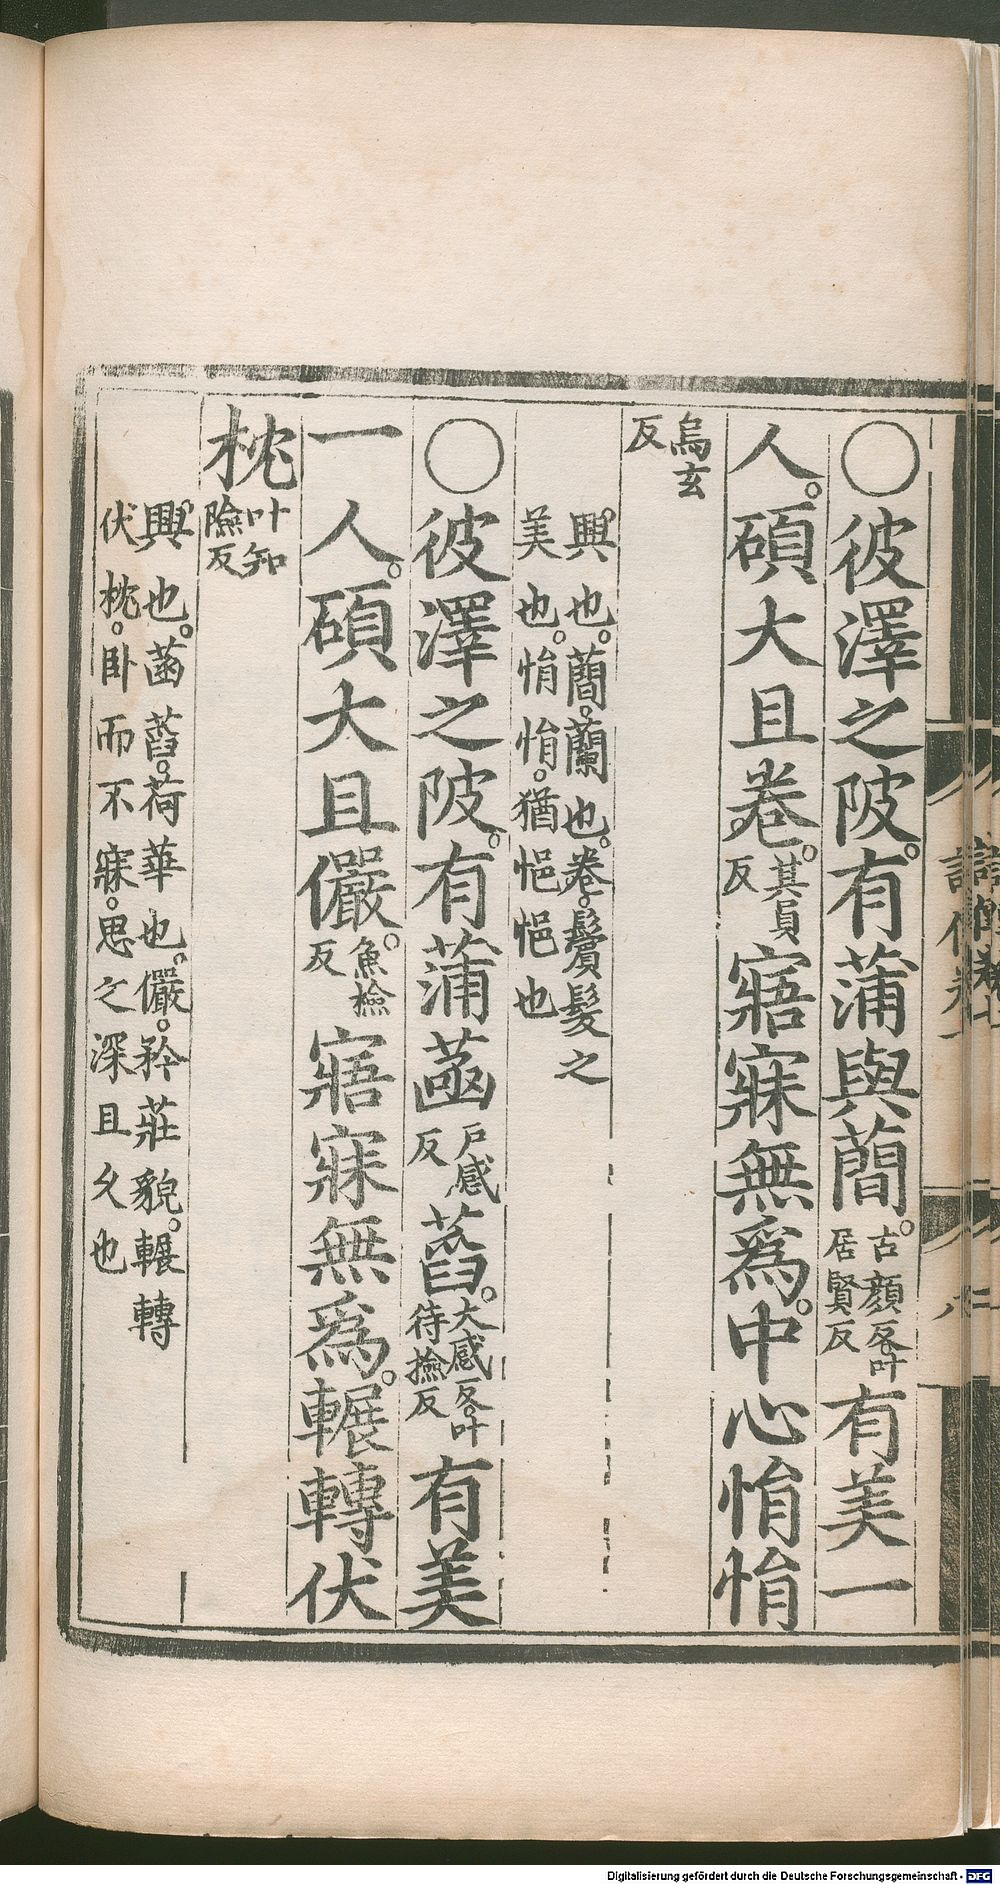 〇彼澤之陂。有蒲與蕑。古顏反。叶居賢反有美一
人。碩大且卷。其員反寤寐無爲。中心悁悁
烏玄反
興也。蕑。蘭也。卷。鬢髮之
美也。悁悁。猶悒悒也
〇彼澤之陂。有蒲菡戶感反萏。大感反。叶待撿反有美
一人。碩大且儼。魚檢反寤寐無爲。輾轉伏
枕叶知險反
興也。菡萏。荷華也。儼。矜莊貌。輾轉
伏枕。卧而不寐。思之深且久也
Digitalisierung gefördert durch die Deutsche Forschungsgemeinschaft - DFG